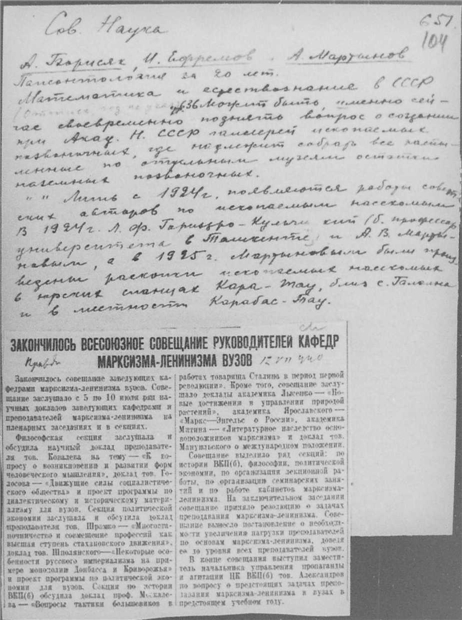 Сов. Наука
651
104
А. Борисяк, И. Ефремов и А. Мартынов
Палеонтология за 20 лет.
Математика и естествознание в СССР
Может быть, именно сей-
час своевременно поднять вопрос о создании
при Акад. Н. СССР галлереи ископаемых
позвоночных, где надлежит собрать все
по отдельным музеям остатки
наземных позвоночных.
" " Лишь с 1924 г. появляются работы совет-
ских авторов по ископаемым насекомым
В 1924 г.
университета в Ташкенте) и А. В. Марты-
новым, а в 1925 г. Мартыновым были произ-
ведены раскопки ископаемых насекомых
в юрских сланцах Кара-Тау, близ с. Галкина
и в местности Карабас-Тау.
ЗАКОНЧИЛОСЬ ВСЕСОЮЗНОЕ СОВЕЩАНИЕ РУКОВОДИТЕЛЕЙ КАФЕДР
МАРКСИЗМА-ЛЕНИНИЗМА ВУЗОВ
Правда
12 VII 940
Закончилось совещание заведующих ка-
федрами марксизма-ленинизма вузов. Сове-
щание заслушало с 5 по 10 июля ряд на-
учных докладов заведующих кафедрами и
преподавателей марксизма-ленинизма на
пленарных заседаниях и в секциях.
Философская секция заслушала и
обсудила научный доклад преподавате-
ля тов. Ковалева на тему — «К вопро-
су о возникновении и развитии форм
человеческого мышления», доклад тов. Го-
лосова — «Движущие силы социалистиче-
ского общества» и проект программы по
диалектическому и историческому матери-
ализму для вузов. Секция политической
экономии заслушала и обсудила доклад
преподавателя тов. — «Многоста-
ночничество и совмещение профессий как
высшая ступень стахановского движения»,
доклад тов. Шполянского — «Некоторые осо-
бенности русского империализма на при-
мере монополий Донбасса и Криворожья»
и проект программы по политической эко-
номии для вузов. Секция по истории
ВКП(б) обсудила доклад проф. Москале-
ва — «Вопросы тактики большевиков в
работах товарища Сталина в период первой
революции». Кроме того, совещание заслу-
шало доклады академика Лысенко — «Но-
вые достижения в управлении природой
растений», академика Ярославского —
«Маркс — Энгельс о России», академика
Митина — «Литературное наследство осно-
воположников марксизма» и доклад тов.
Мануильского о международном положении.
Совещание выделило ряд секций: по
истории ВКП(б), философии, политической
экономии, по организации лекционной ра-
боты, по организации семинарских заня-
тий и по работе кабинетов марксизма-
ленинизма. На заключительном заседании
совещание приняло резолюцию о задачах
преподавания марксизма-ленинизма. Сове-
щание вынесло постановление о необходи-
мости увеличения нагрузки преподавателей
по основам марксизма-ленинизма, доведя
ее до уровня всех преподавателей вузов.
В конце совещания выступил замести-
тель начальника управления пропаганды
и агитации ЦК ВКП(б) тов. Александров
по вопросу о предстоящих задачах препо-
давания марксизма-ленинизма в вузах в
предстоящем учебном году.